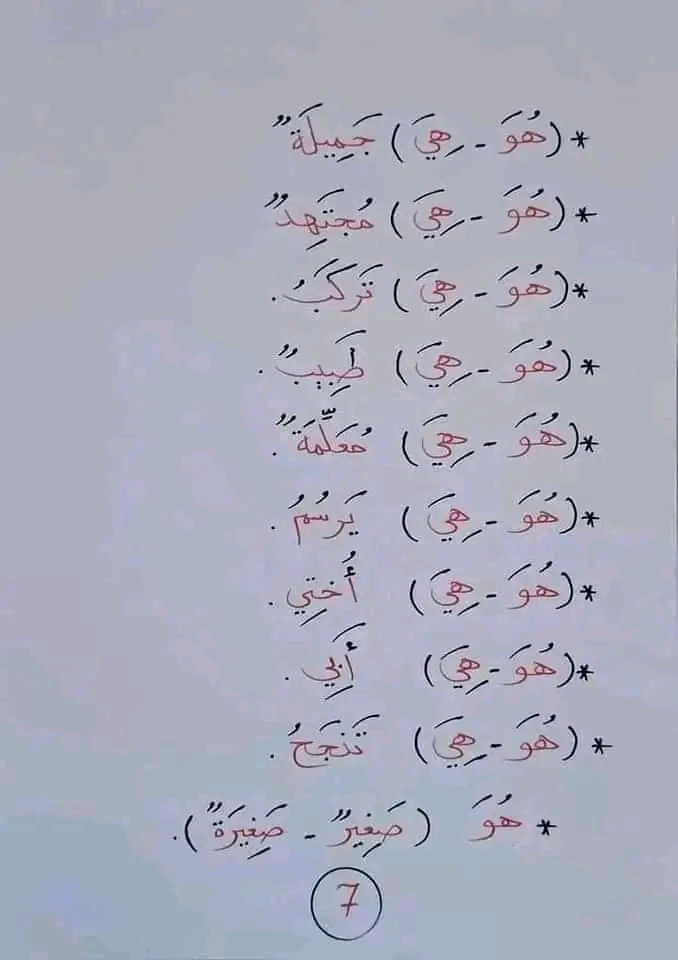 * (هُوَ - هِيَ) جَمِيلَةٌ
* (هُوَ - هِيَ) مُجتَهِدٌ
* (هُوَ - هِيَ) تَركَبُ.
* (هُوَ - هِيَ) طَبِيبٌ.
* (هُوَ - هِيَ) مُعَلِّمَةٌ.
* (هُوَ - هِيَ) يَرسُمُ.
* (هُوَ - هِيَ) أُختِي.
* (هُوَ - هِيَ) أَبِي.
* (هُوَ - هِيَ) تَنجَحُ.
* هُوَ (صَغِيرٌ - صَغِيرَةٌ).
7